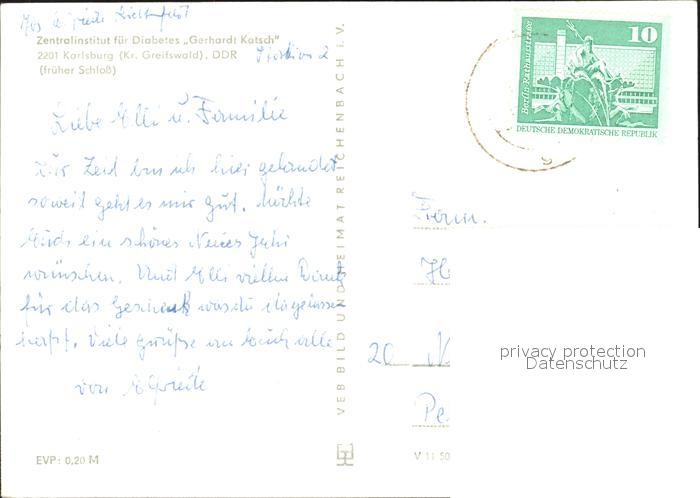 Zentralinstitut für Diabetes „Gerhardt Katsch"
2201 Karlsburg (Kr. Greifswald), DDR Station 2
(früher Schloß)
Liebe Elli u. Familie
Zur Zeit bin ich hier gelandet
soweit geht es mir gut. Möchte
Euch ein schönes Neues Jahr
wünschen. Und Elli vielen Dank
für das Geschenk was du dagelassen
hast. Viele Grüße an Euch alle
von
EVP: 0,20 M
VEB BILD UND HEIMAT REICHENBACH i. V.
10
Berlin · Rathausstraße
DEUTSCHE DEMOKRATISCHE REPUBLIK
Fam.
20 N
Pe
V 11 50
privacy protection
Datenschutz